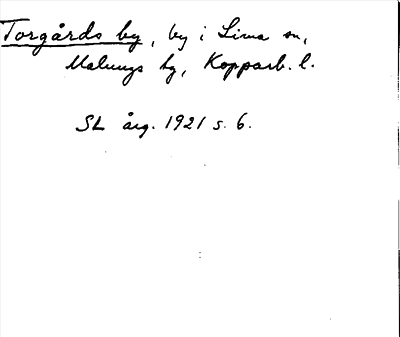 Torgårds by, by i Lima sn,
Malungs tg, Kopparb. l.
SL årg. 1921 s. 6.